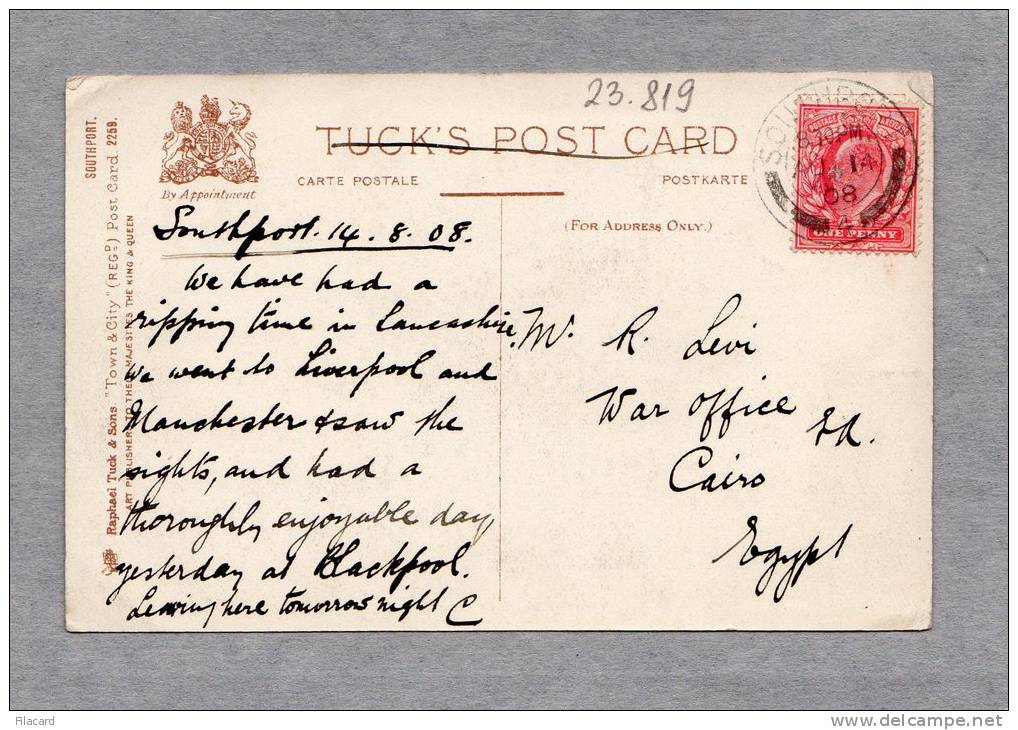 23.819
TUCK'S POST CARD
CARTE POSTALE
POSTKARTE
By Appointment
(FOR ADDRESS ONLY.)
SOUTHPORT.
Raphael Tuck & Sons "Town & City" (REGD) Post Card 2259.
ART PUBLISHERS TO THEIR MAJESTIES THE KING & QUEEN
Southport. 14.8.08.
We have had a
ripping time in Lancashire.
We went to Liverpool and
Manchester & saw the
sights, and had a
thoroughly enjoyable day
yesterday at Blackpool.
Leaving here tomorrow night C
Mr R. Levi
War Office
Cairo
Egypt
SOUTHPORT
PM
14
08
POSTAGE
ONE PENNY
Filacard
www.delcampe.net